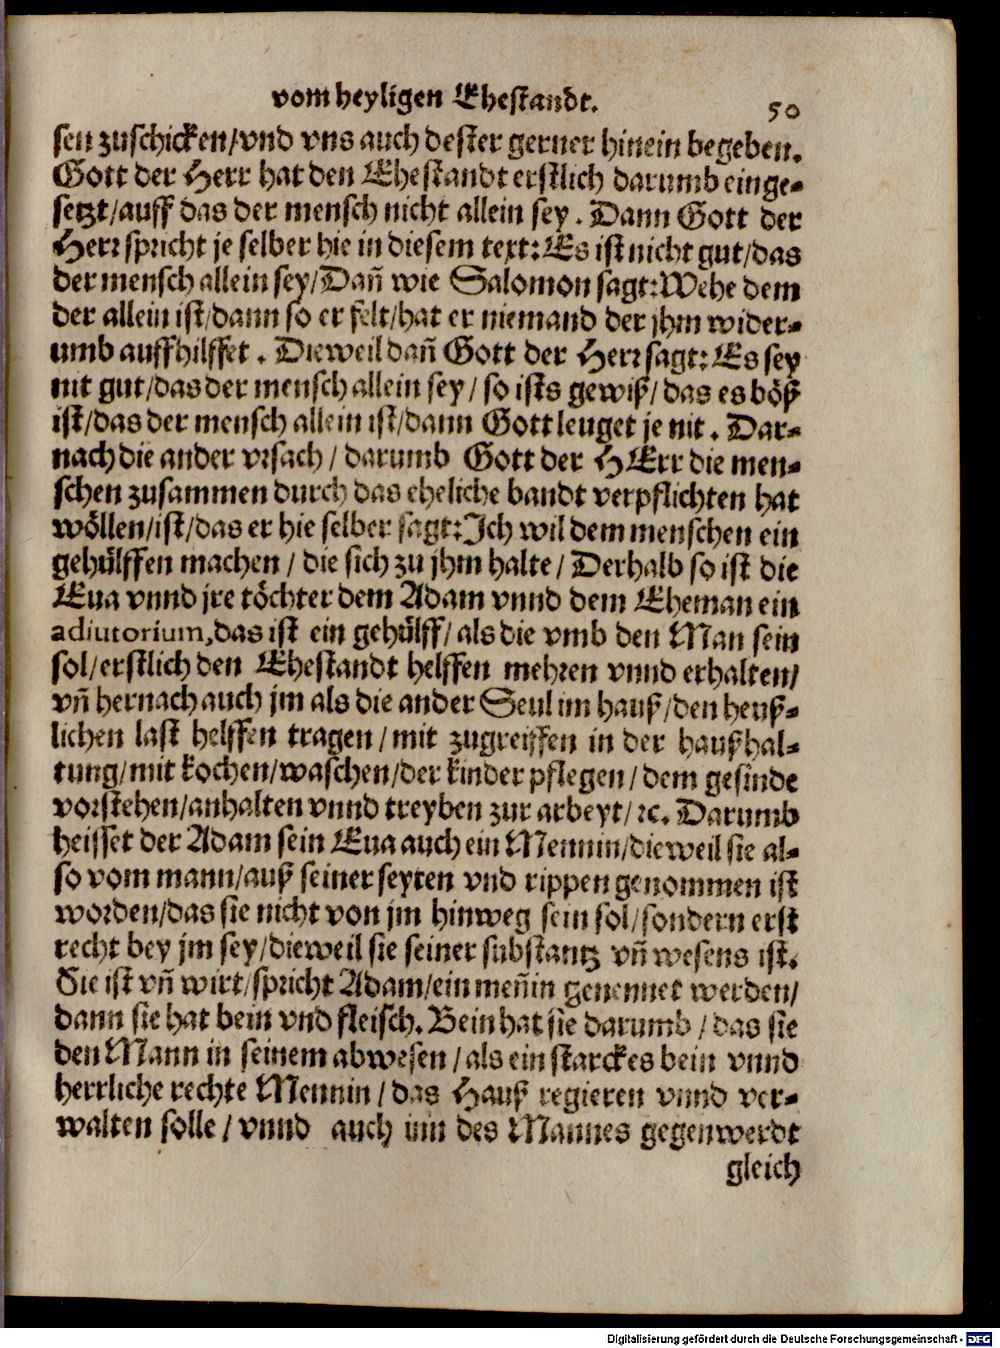 vom heyligen Ehestandt.
50
sen zuschicken/vnd vns auch dester gerner hinein begeben.
Gott der Herr hat den Ehestandt erstlich darumb einge-
setzt/auff das der mensch nicht allein sey. Dann Gott der
Herr spricht je selber hie in diesem text: Es ist nicht gut/das
der mensch allein sey/Dañ wie Salomon sagt: Wehe dem
der allein ist/dann so er felt/hat er niemand der jhm wider-
umb auffhilffet. Dieweil dañ Gott der Herr sagt: Es sey
nit gut/das der mensch allein sey/so ists gewiß/das es böß
ist/das der mensch allein ist/dann Gott leuget je nit. Dar-
nach die ander vrsach/darumb Gott der HErr die men-
schen zusammen durch das eheliche bandt verpflichten hat
wöllen/ist/das er hie selber sagt: Ich wil dem menschen ein
gehülffen machen/die sich zu jhm halte/Derhalb so ist die
Eua vnnd jre töchter dem Adam vnnd dem Eheman ein
adiutorium, das ist ein gehülff/als die vmb den Man sein
sol/erstlich den Ehestandt helffen mehren vnnd erhalten/
vñ hernach auch jm als die ander Seul im hauß/den heuß-
lichen last helffen tragen/mit zugreiffen in der haußhal-
tung/mit kochen/waschen/der kinder pflegen/dem gesinde
vorstehen/anhalten vnnd treyben zur arbeyt/ꝛc. Darumb
heisset der Adam sein Eua auch ein Mennin/dieweil sie al-
so vom mann/auß seiner seyten vnd rippen genommen ist
worden/das sie nicht von jm hinweg sein sol/sondern erst
recht bey jm sey/dieweil sie seiner substantz vñ wesens ist.
Sie ist vñ wirt/spricht Adam/ein meñin genennet werden/
dann sie hat bein vnd fleisch. Bein hat sie darumb/das sie
den Mann in seinem abwesen/als ein starckes bein vnnd
herrliche rechte Mennin/das Hauß regieren vnnd ver-
walten solle/vnnd auch inn des Mannes gegenwerdt
gleich
Digitalisierung gefördert durch die Deutsche Forschungsgemeinschaft - DFG